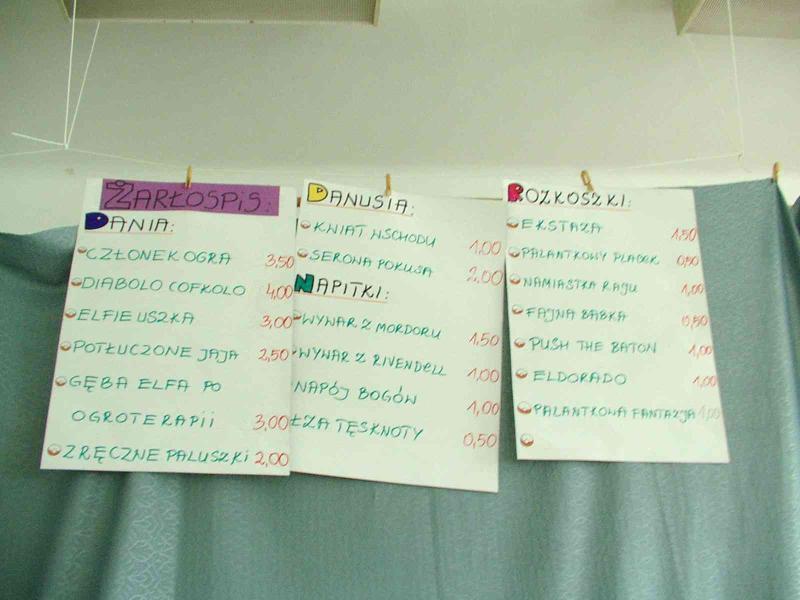 ŻARŁOSPIS:
DANIA:
CZŁONEK OGRA 3,50
DIABOLO COFKOLO 4,00
ELFIE USZKA 3,00
POTŁUCZONE JAJA 2,50
GĘBA ELFA PO
OGROTERAPII 3,00
ZRĘCZNE PALUSZKI 2,00
DANUSIA:
KWIAT WSCHODU 1,00
SEROWA POKUSA 2,00
NAPITKI:
WYWAR Z MORDORU 1,50
WYWAR Z RIVENDELL 1,00
NAPÓJ BOGÓW 1,00
ŁZA TĘSKNOTY 0,50
ROZKOSZKI:
EKSTAZA 1,50
PALANTKOWY PLACEK 0,50
NAMIASTKA RAJU 1,00
FAJNA BABKA 0,50
PUSH THE BATON 1,00
ELDORADO 1,00
PALANTKOWA FANTAZJA 1,00